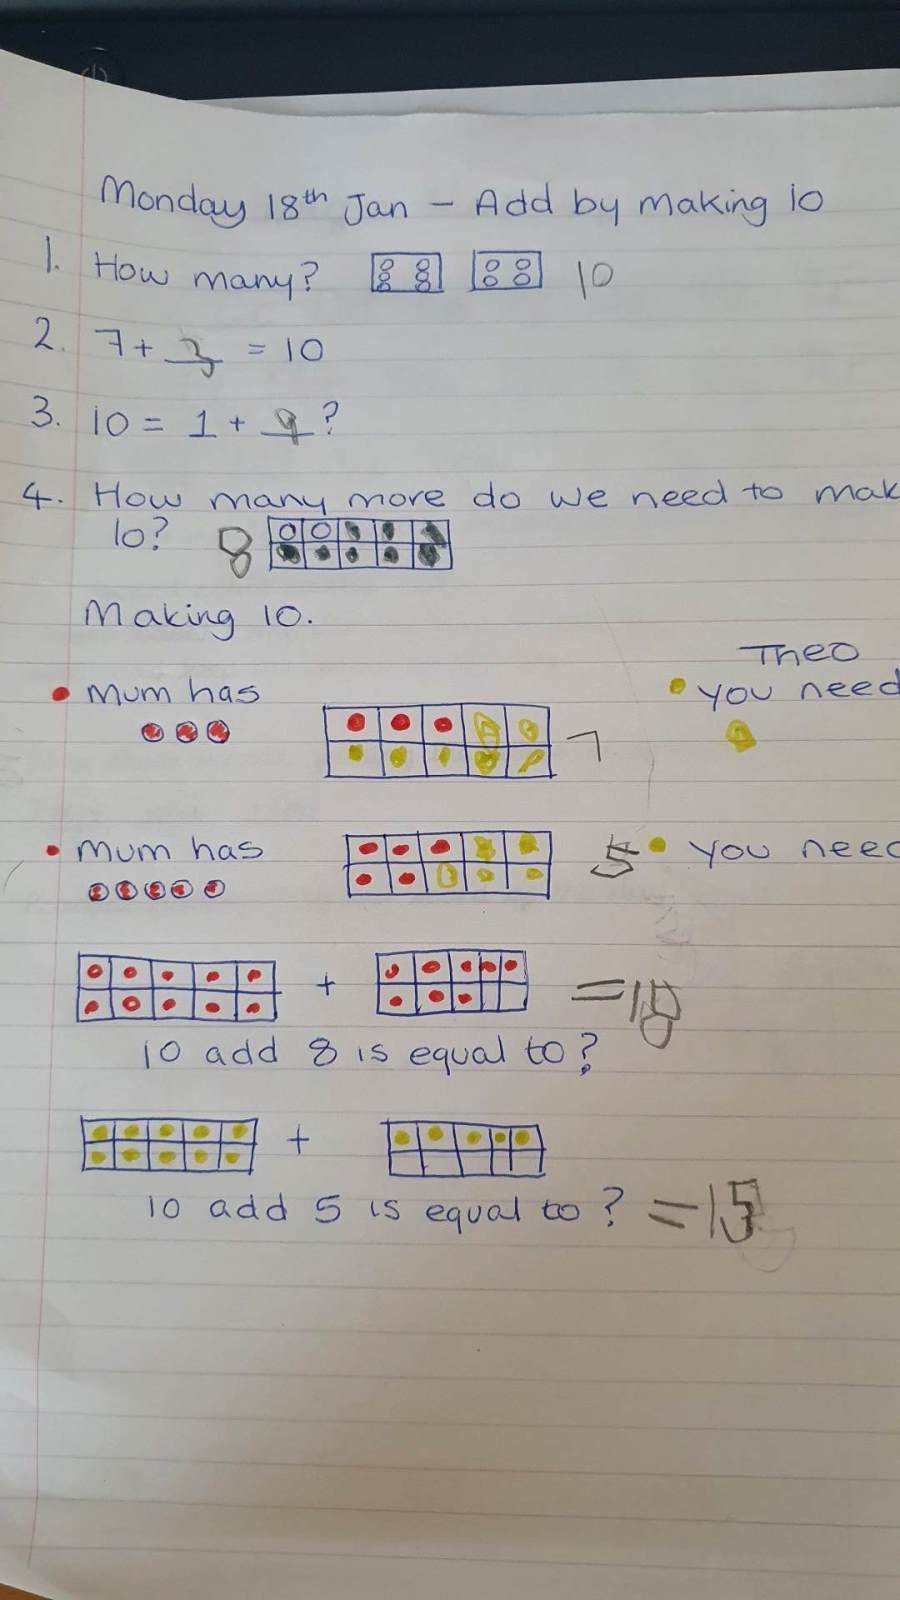 Monday 18th Jan - Add by making 10
1. How many? 10
2. 7 + 3 = 10
3. 10 = 1 + 9?
4. How many more do we need to mak
10? 8
Making 10.
Theo
mum has
you need
7
mum has
5
you need
+ = 18
10 add 8 is equal to?
+
10 add 5 is equal to? = 15